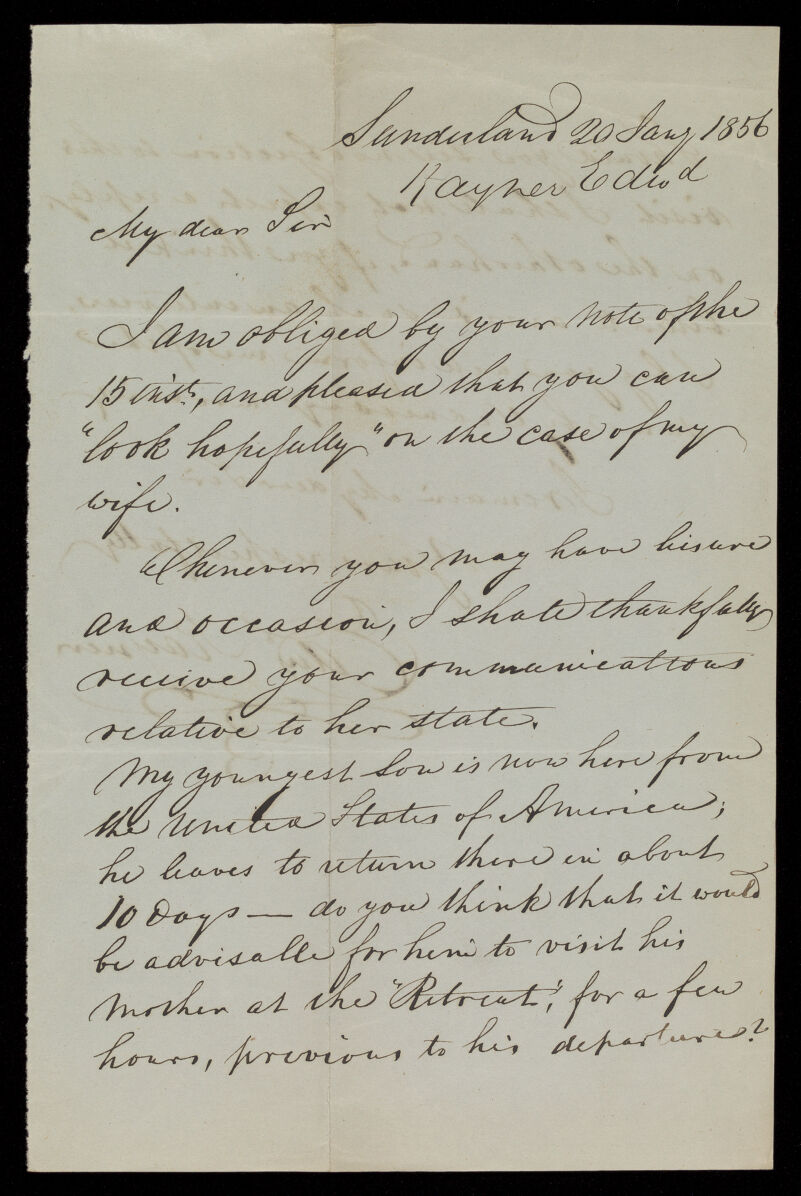 Sunderland 20 Jany 1856
Kayner Edwd
My dear Sir
I am obliged by your note of the
15 inst, and pleased that you can
"look hopefully" on the case of my
wife.
Whenever you may have leisure
and occasion, I shall thankfully
receive your communications
relative to her state.
My youngest Son is now here from
the United States of America;
he leaves to return there in about
10 Days — do you think that it would
be advisable for him to visit his
Mother at the "Retreat", for a few
hours, previous to his departure?